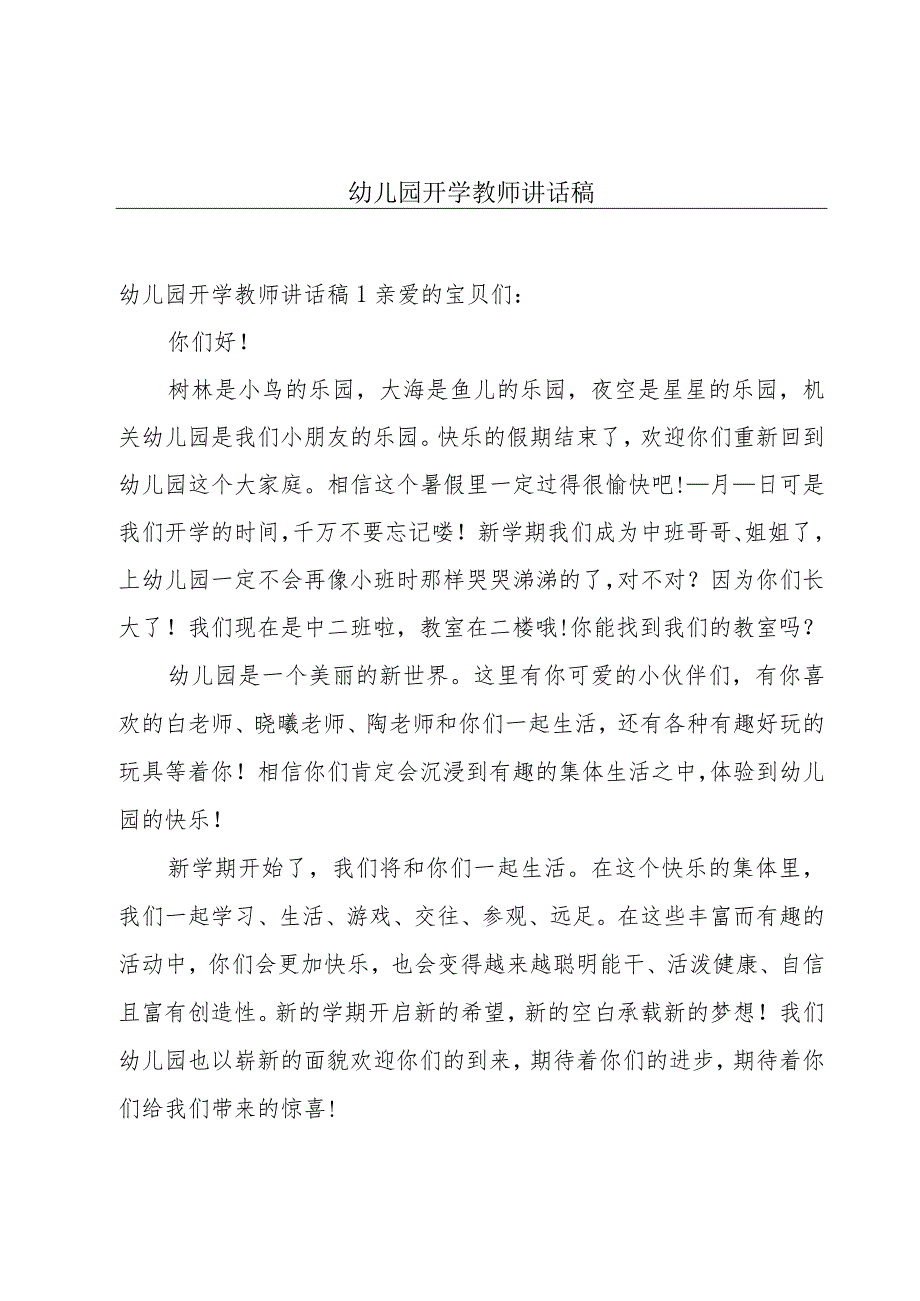 幼儿园开学教师讲话稿
幼儿园开学教师讲话稿1亲爱的宝贝们：
你们好！
树林是小鸟的乐园，大海是鱼儿的乐园，夜空是星星的乐园，机
关幼儿园是我们小朋友的乐园。快乐的假期结束了，欢迎你们重新回到
幼儿园这个大家庭。相信这个暑假里一定过得很愉快吧!—月—日可是
我们开学的时间，千万不要忘记喽！新学期我们成为中班哥哥、姐姐了，
上幼儿园一定不会再像小班时那样哭哭涕涕的了，对不对？因为你们长
大了！我们现在是中二班啦，教室在二楼哦!你能找到我们的教室吗？
幼儿园是一个美丽的新世界。这里有你可爱的小伙伴们，有你喜
欢的白老师、晓曦老师、陶老师和你们一起生活，还有各种有趣好玩的
玩具等着你！相信你们肯定会沉浸到有趣的集体生活之中，体验到幼儿
园的快乐！
新学期开始了，我们将和你们一起生活。在这个快乐的集体里，
我们一起学习、生活、游戏、交往、参观、远足。在这些丰富而有趣的
活动中，你们会更加快乐，也会变得越来越聪明能干、活泼健康、自信
且富有创造性。新的学期开启新的希望，新的空白承载新的梦想！我们
幼儿园也以崭新的面貌欢迎你们的到来，期待着你们的进步，期待着你
们给我们带来的惊喜!